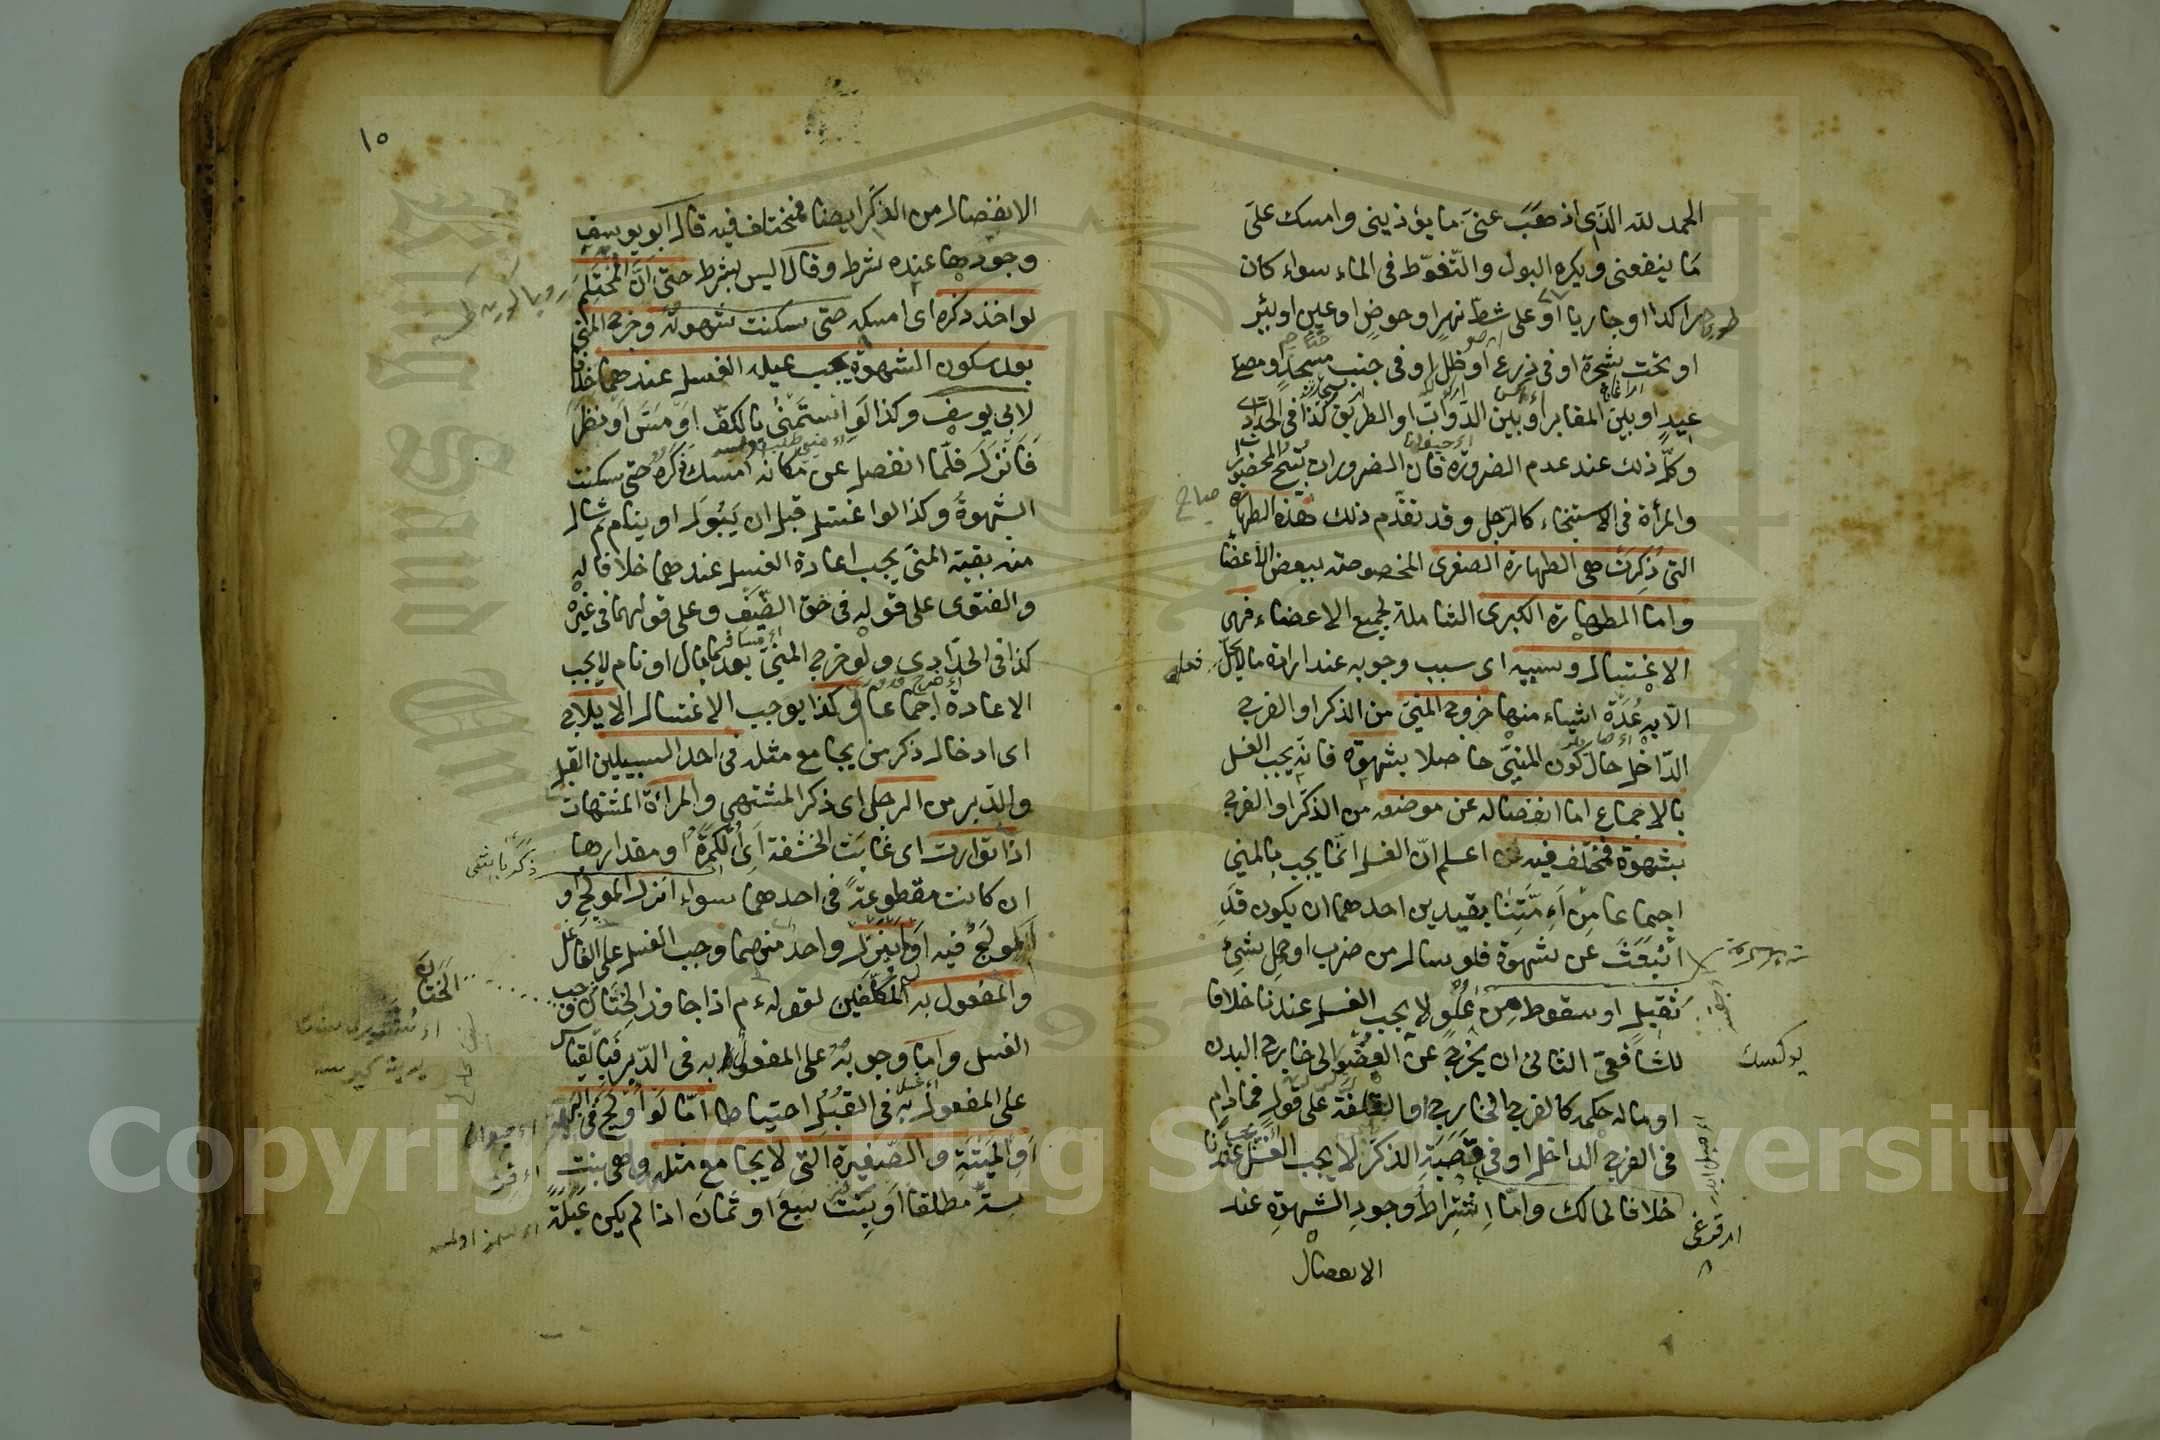 الحمد لله الذى اذهب عنى ما يؤذينى وامسك على
ما ينفعنى ويكره البول والتغوط فى الماء سواء كان
راكدا او جاريا او على شط نهر او حوض او عين او بئر
او تحت شجرة او فى زرع او ظل او فى جنب مسجد ومصلى
عيد او بين المقابر او بين الدواب او الطريق كذا فى الحدادى
وكل ذلك عند عدم الضرورة فان الضرورات تبيح المحضورات
والمرأة فى الاستنجاء كالرجل وقد تقدم ذلك هذه الطهارة
التى ذكرت هى الطهارة الصغرى المخصوصة ببعض الاعضاء
واما الطهارة الكبرى الشاملة لجميع الاعضاء فهى
الاغتسال وسببه اى سبب وجوبه عند ارادة ما لا يحل فعله
الا به عدة اشياء منها خروج المنى من الذكر او الفرج
الداخل حال كون المنى حاصلا بشهوة فانه يجب الغسل
بالاجماع اما انفصاله عن موضعه من الذكر او الفرج
بشهوة فمختلف فيه اعلم ان الغسل انما يجب بالمنى
اجماعا من ائمتنا بقيدين احدهما ان يكون قد
انبعث عن شهوة فلو سال من ضرب او حمل شئ
ثقيل او سقوط من علو لا يجب الغسل عندنا خلافا
للشافعى الثانى ان يخرج عن العضو الى خارج البدن
او ماله حكمه كالفرج الخارج او القلفة على قول فما دام
فى الفرج الداخل او فى قصبة الذكر لا يجب الغسل عندنا
خلافا لمالك واما اشتراط وجود الشهوة عند
الانفصال
١٥
الانفصال من الذكر ايضا فمختلف فيه قال ابو يوسف
وجودها عنده شرط وقالا ليس بشرط حتى ان المحتلم
لو اخذ ذكره اى امسكه حتى سكنت شهوته وخرج المنى
بعد سكون الشهوة يجب عليه الغسل عندهما خلافا
لابى يوسف وكذا لو استمنى بالكف او مس او نظر
فانزل فلما انفصل عن مكانه امسك ذكره حتى سكنت
الشهوة وكذا لو اغتسل قبل ان يبول او ينام ثم سال
منه بقية المنى يجب اعادة الغسل عندهما خلافا له
والفتوى على قوله فى حق الضيف وعلى قولهما فى غيره
كذا فى الحدادى ولو خرج المنى بعد ما بال او نام لا يجب
الاعادة اجماعا وكذا يوجب الاغتسال الايلاج
اى ادخال ذكر من يجامع مثله فى احد السبيلين القبل
والدبر من الرجل اى ذكر المشتهى والمرأة المشتهات
اذا توارت اى غابت الحشفة اى الكمرة او مقدارها
ان كانت مقطوعة فى احدهما سواء انزل المولج او
المولج فيه او لم ينزل واحد منهما وجب الغسل على الفاعل
والمفعول به المكلفين لقوله ءم اذا جاوز الختان وجب
الغسل واما وجوبه على المفعول به فى الدبر فبالقياس
على المفعول به فى القبل احتياطا اما لو اولج فى البهيمة
او الميتة والصغيرة التى لا يجامع مثله وهى بنت
ست مطلقا او بنت سبع او ثمان اذا لم يكن عبلة
Copyright © King Saud University
King Saud University
1957